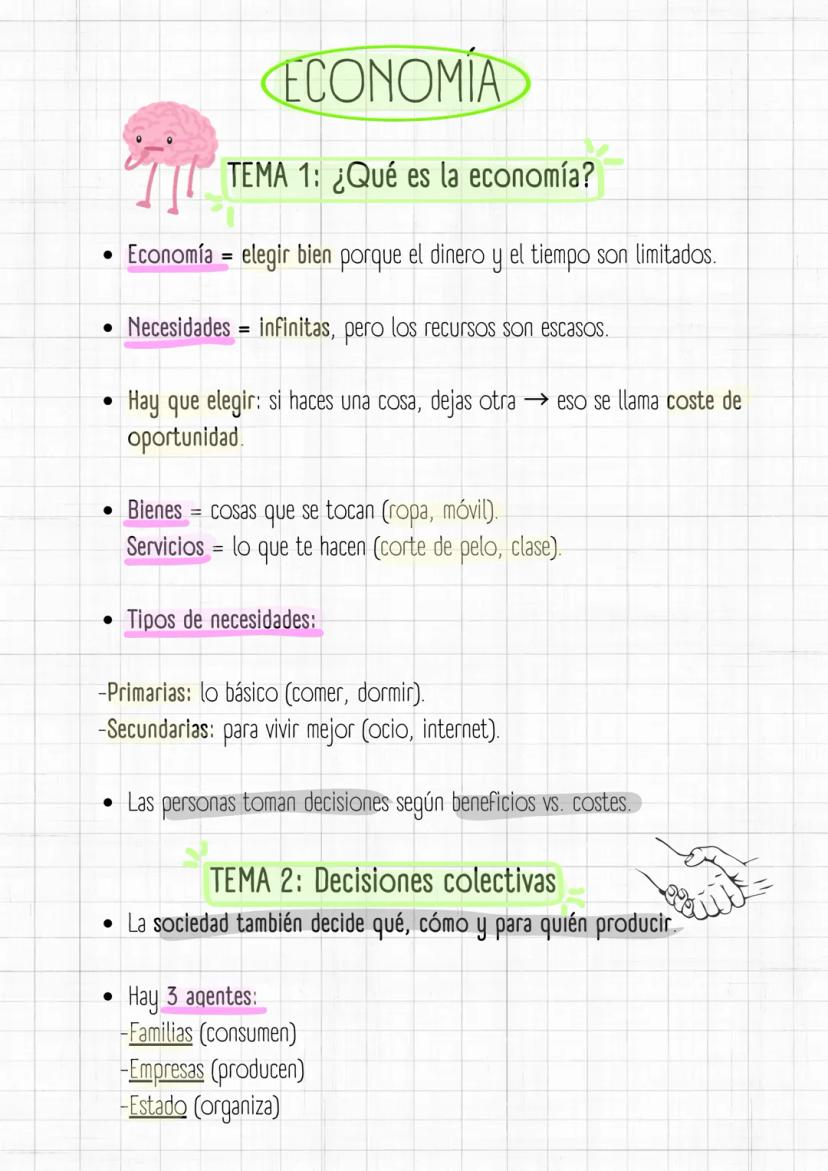 ECONOMÍA
TEMA 1: ¿Qué es la economía?
• Economía = elegir bien porque el dinero y el tiempo son limitados.
• Necesidades = infinitas, pero los recursos son escasos.
• Hay que elegir: si haces una cosa, dejas otra → eso se llama coste de
oportunidad.
• Bienes = cosas que se tocan (ropa, móvil).
Servicios = lo que te hacen (corte de pelo, clase).
• Tipos de necesidades:
-Primarias: lo básico (comer, dormir).
-Secundarias: para vivir mejor (ocio, internet).
• Las personas toman decisiones según beneficios vs. costes.
TEMA 2: Decisiones colectivas
• La sociedad también decide qué, cómo y para quién producir.
• Hay 3 agentes:
-Familias (consumen)
-Empresas (producen)
-Estado (organiza)